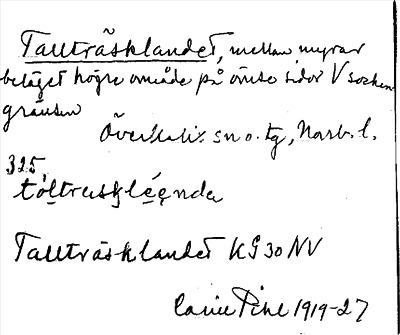 Tallträsklandet, mellan myrar
beläget högre område på ömse sidor V socken
gränsen
Överkalix sn o. tg, Norrb. l.
325.
Tallträsklandet KG30 NV
Carin Pihl 1919-27